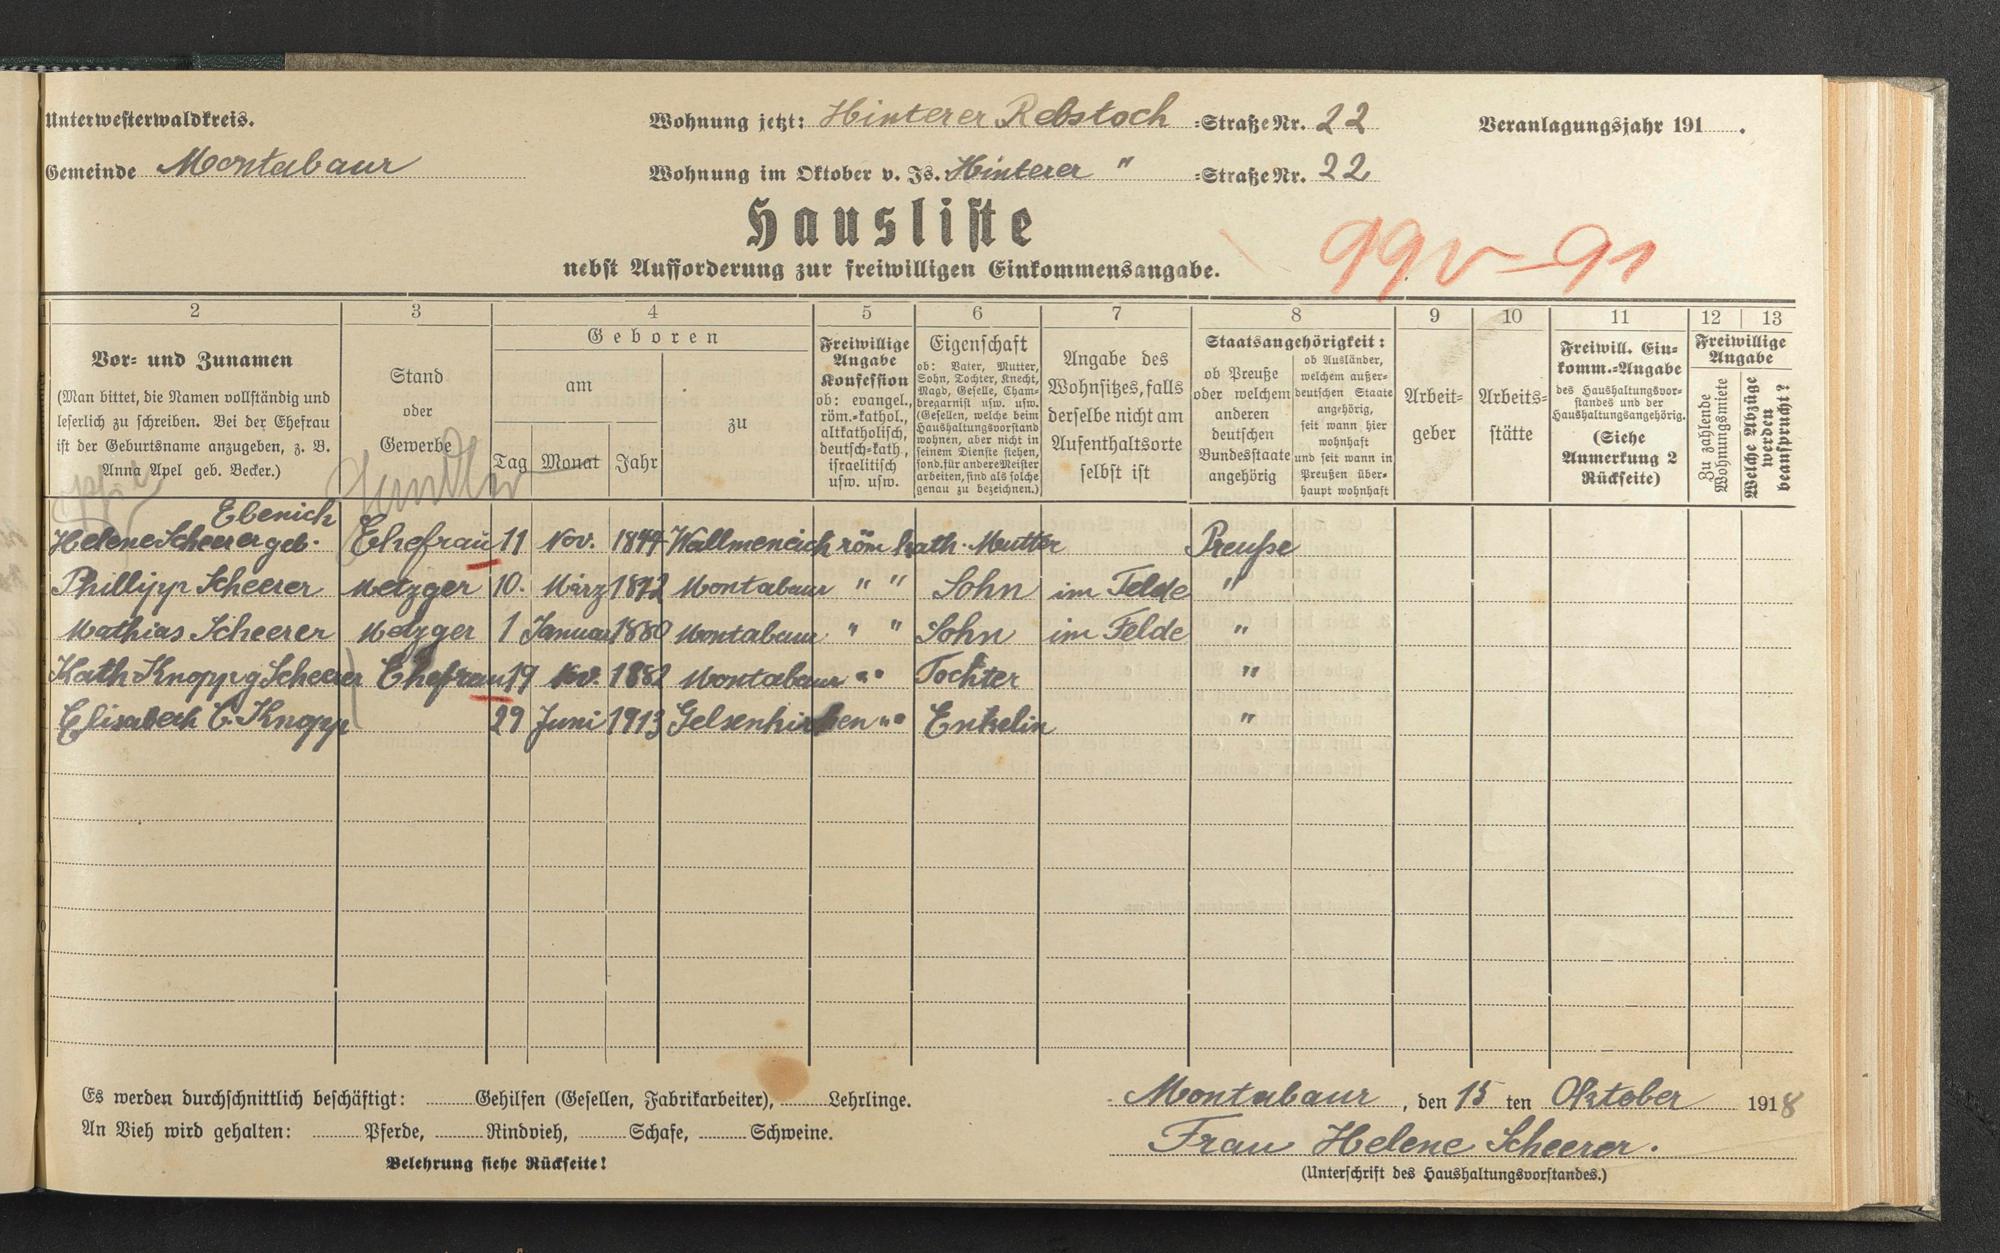 Unterwesterwaldkreis.
Wohnung jetzt: Hinterer Rebstoch =Straße Nr. 22
Veranlagungsjahr 191 .
Gemeinde Montabaur
Wohnung im Oktober v. Js. Hinterer " =Straße Nr. 22
Hausliste
nebst Aufforderung zur freiwilligen Einkommensangabe.
99v-91
2
Vor= und Zunamen
(Man bittet, die Namen vollständig und
leserlich zu schreiben. Bei der Ehefrau
ist der Geburtsname anzugeben, z. B.
Anna Apel geb. Becker.)
3
Stand
oder
Gewerbe
4
Geboren
am
Tag Monat Jahr
zu
5
Freiwillige
Angabe
Konfession
ob: evangel.,
röm.=kathol.,
altkatholisch,
deutsch=kath.,
israelitisch
usw. usw.
6
Eigenschaft
ob: Vater, Mutter,
Sohn, Tochter, Knecht,
Magd, Geselle, Cham=
bregarnist usw. usw.
(Gesellen, welche beim
Haushaltungsvorstand
wohnen, aber nicht in
seinem Dienste stehen,
sond. für andere Meister
arbeiten, sind als solche
genau zu bezeichnen.)
7
Angabe des
Wohnsitzes, falls
derselbe nicht am
Aufenthaltsorte
selbst ist
8
Staatsangehörigkeit:
ob Preuße
oder welchem
anderen
deutschen
Bundesstaate
angehörig
ob Ausländer,
welchem außer=
deutschen Staate
angehörig,
seit wann hier
wohnhaft
und seit wann in
Preußen über=
haupt wohnhaft
9
Arbeit=
geber
10
Arbeits=
stätte
11
Freiwill. Ein=
komm.=Angabe
des Haushaltungsvor=
standes und der
Haushaltungsangehörig.
(Siehe
Anmerkung 2
Rückseite)
12 13
Freiwillige
Angabe
Zu zahlende
Wohnungsmiete
Welche Abzüge
werden
beansprucht?
Ebenich
Helene Scheerer geb. Ehefrau 11 Nov. 1844 Wallmeneich röm kath. Mutter Preuße
Phillipp Scheerer Metzger 10. März 1872 Montabaur " " Sohn im Felde "
Mathias Scheerer Metzger 1 Januar 1880 Montabaur " " Sohn im Felde "
Kath Knopp g Scheerer Ehefrau 19 Nov. 1882 Montabaur " " Tochter "
Elisabeth C. Knopp 29 Juni 1913 Gelsenkirchen " " Enkelin "
Es werden durchschnittlich beschäftigt: Gehilfen (Gesellen, Fabrikarbeiter), Lehrlinge.
An Vieh wird gehalten: Pferde, Rindvieh, Schafe, Schweine.
Belehrung siehe Rückseite!
Montabaur, den 15 ten Oktober 1918
Frau Helene Scheerer.
(Unterschrift des Haushaltungsvorstandes.)